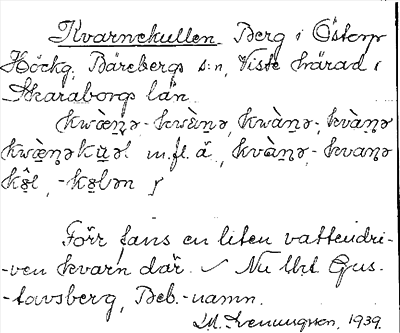 Kvarnekullen Berg i Östorp
Höckg. Bärebergs s:n, Viste härad i
Skaraborgs län.
kwæ̀n̥ə- kwèn̥ə, kwàn̥ə-, kvàn̥ə
kwæ̀n̥əkʉ̲əl m.fl. ä, kvàn̥ə-, kvanə
-kɵ̂l, -kɵ̲lən
Förr fans en liten vattendri-
-ven kvarn där. Nu
-tavsberg, Beb.-namn.
1939.